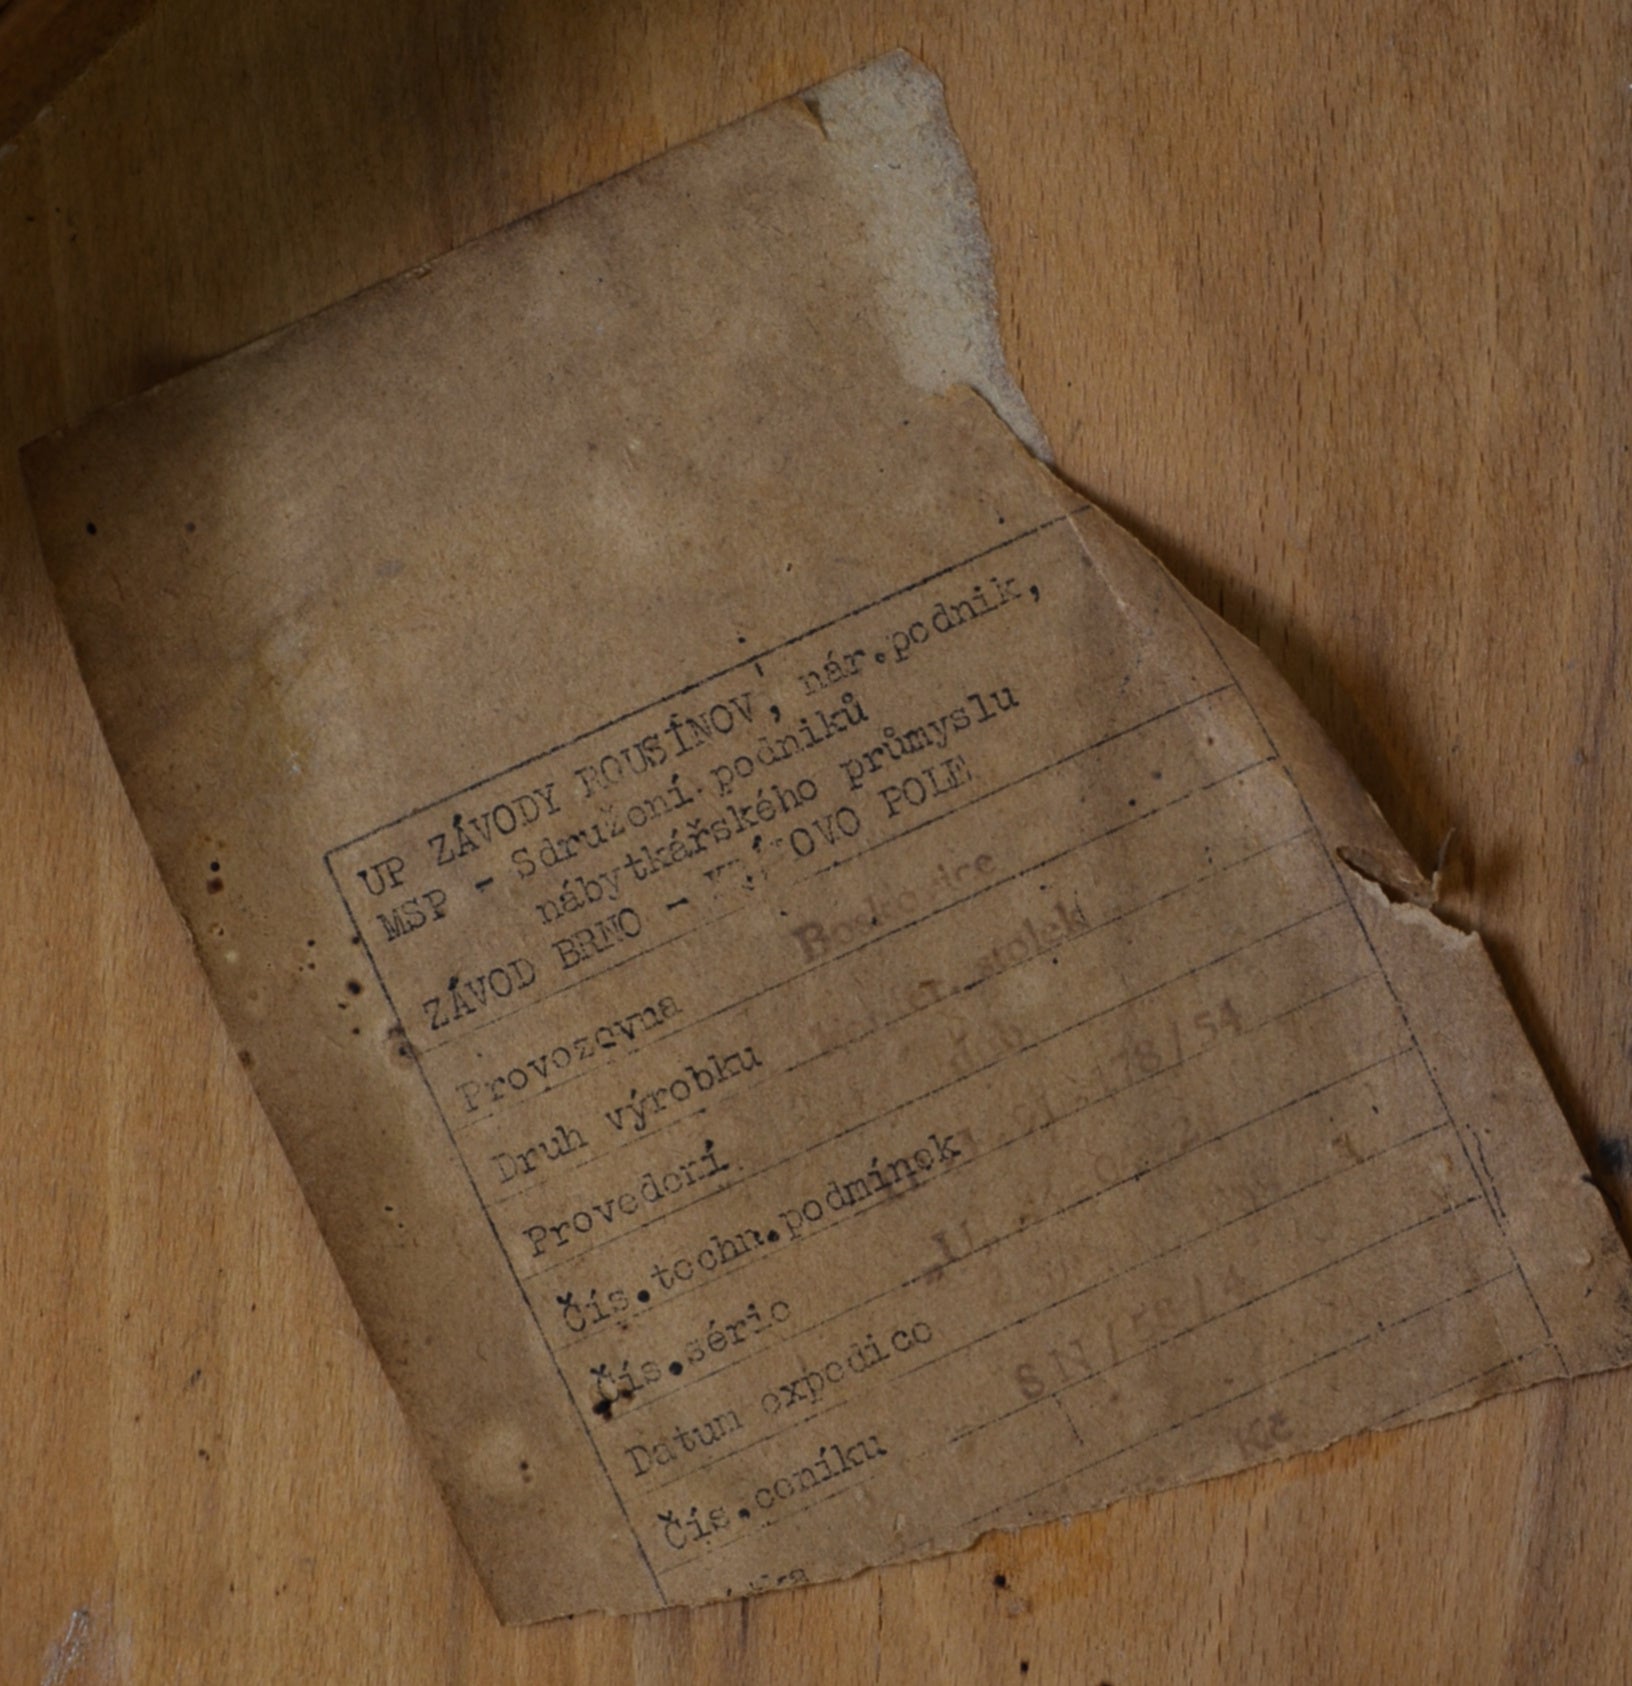 UP ZÁVODY ROUSÍNOV, nár.podnik,
MSP - Sdružení podniků
nábytkářského průmyslu
ZÁVOD BRNO - KRÁLOVO POLE
Provozovna Boskovice
Druh výrobku stolek
Provedení dub
Čís.techn.podmínek 178/54
Čís.série
Datum expedice
Čís.ceníku SN/58/4
Kč